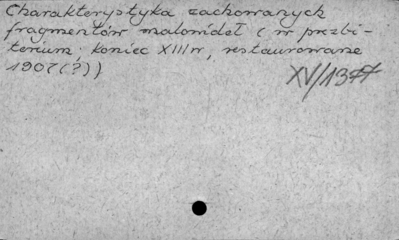 Charakterystyka zachowanych
fragmentów malowideł (w prezbi-
terium koniec XIII w, restaurowane
1907(?))
XV/1377